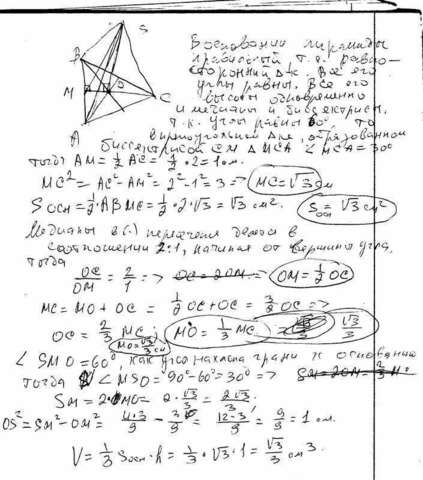 S
B
M
O
C
A
В основании пирамиды
правильный т.е. равно-
сторонний Δк. Все его
углы равны. Все его
высоты одновременно
и медианы и биссектрисы,
т.к. углы равны 60°, то
в прямоугольном Δке, образованном
биссектрисой CM Δ MCA ∠MCA = 30°
тогда AM = 1/2 AC = 1/2 · 2 = 1 см.
MC² = AC² - AM² = 2² - 1² = 3 => MC = √3 см
Sосн = 1/2 · AB · MC = 1/2 · 2 · √3 = √3 см². Sосн = √3 см²
Медианы в (·) пересечения делятся в
соотношении 2:1, начиная от вершины угла,
тогда
OC/OM = 2/1 => OC = 2OM => OM = 1/2 OC
MC = MO + OC = 1/2 OC + OC = 3/2 OC =>
OC = 2/3 MC MO = 1/3 MC √3/3
MO = √3/3 см
∠ SMO = 60°, как угол наклона грани к основанию
тогда ∠ MSO = 90° - 60° = 30° => SM = 2OM =
SM = 2 · MO = 2 · √3/3 = 2√3/3
OS² = SM² - OM² = 4·3/9 - 3/9 = 12-3/9 = 9/9 = 1 см.
V = 1/3 Sосн · h = 1/3 · √3 · 1 = √3/3 см³.